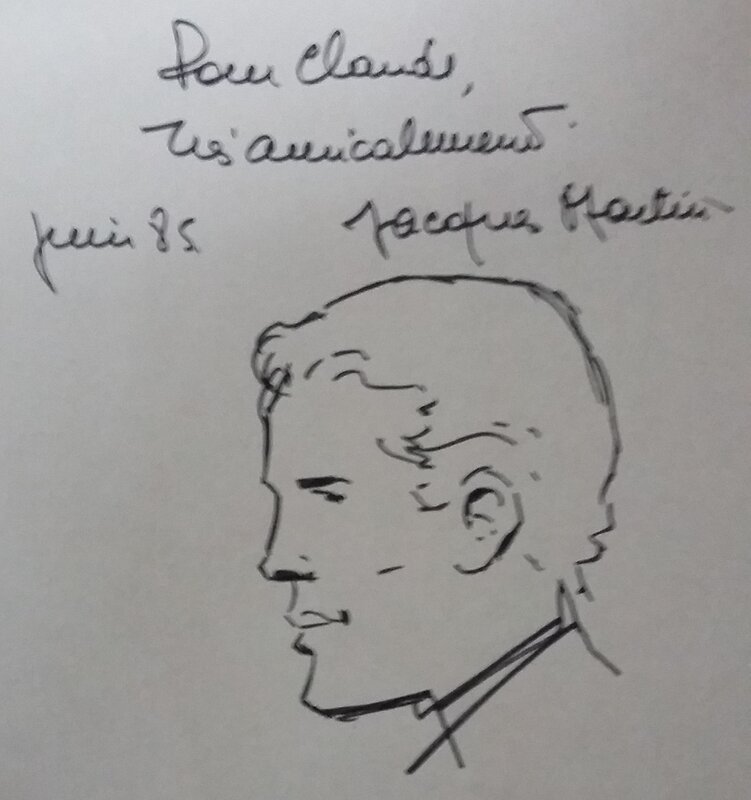 Pour Claude,
Très amicalement.
juin 85 Jacques Martin